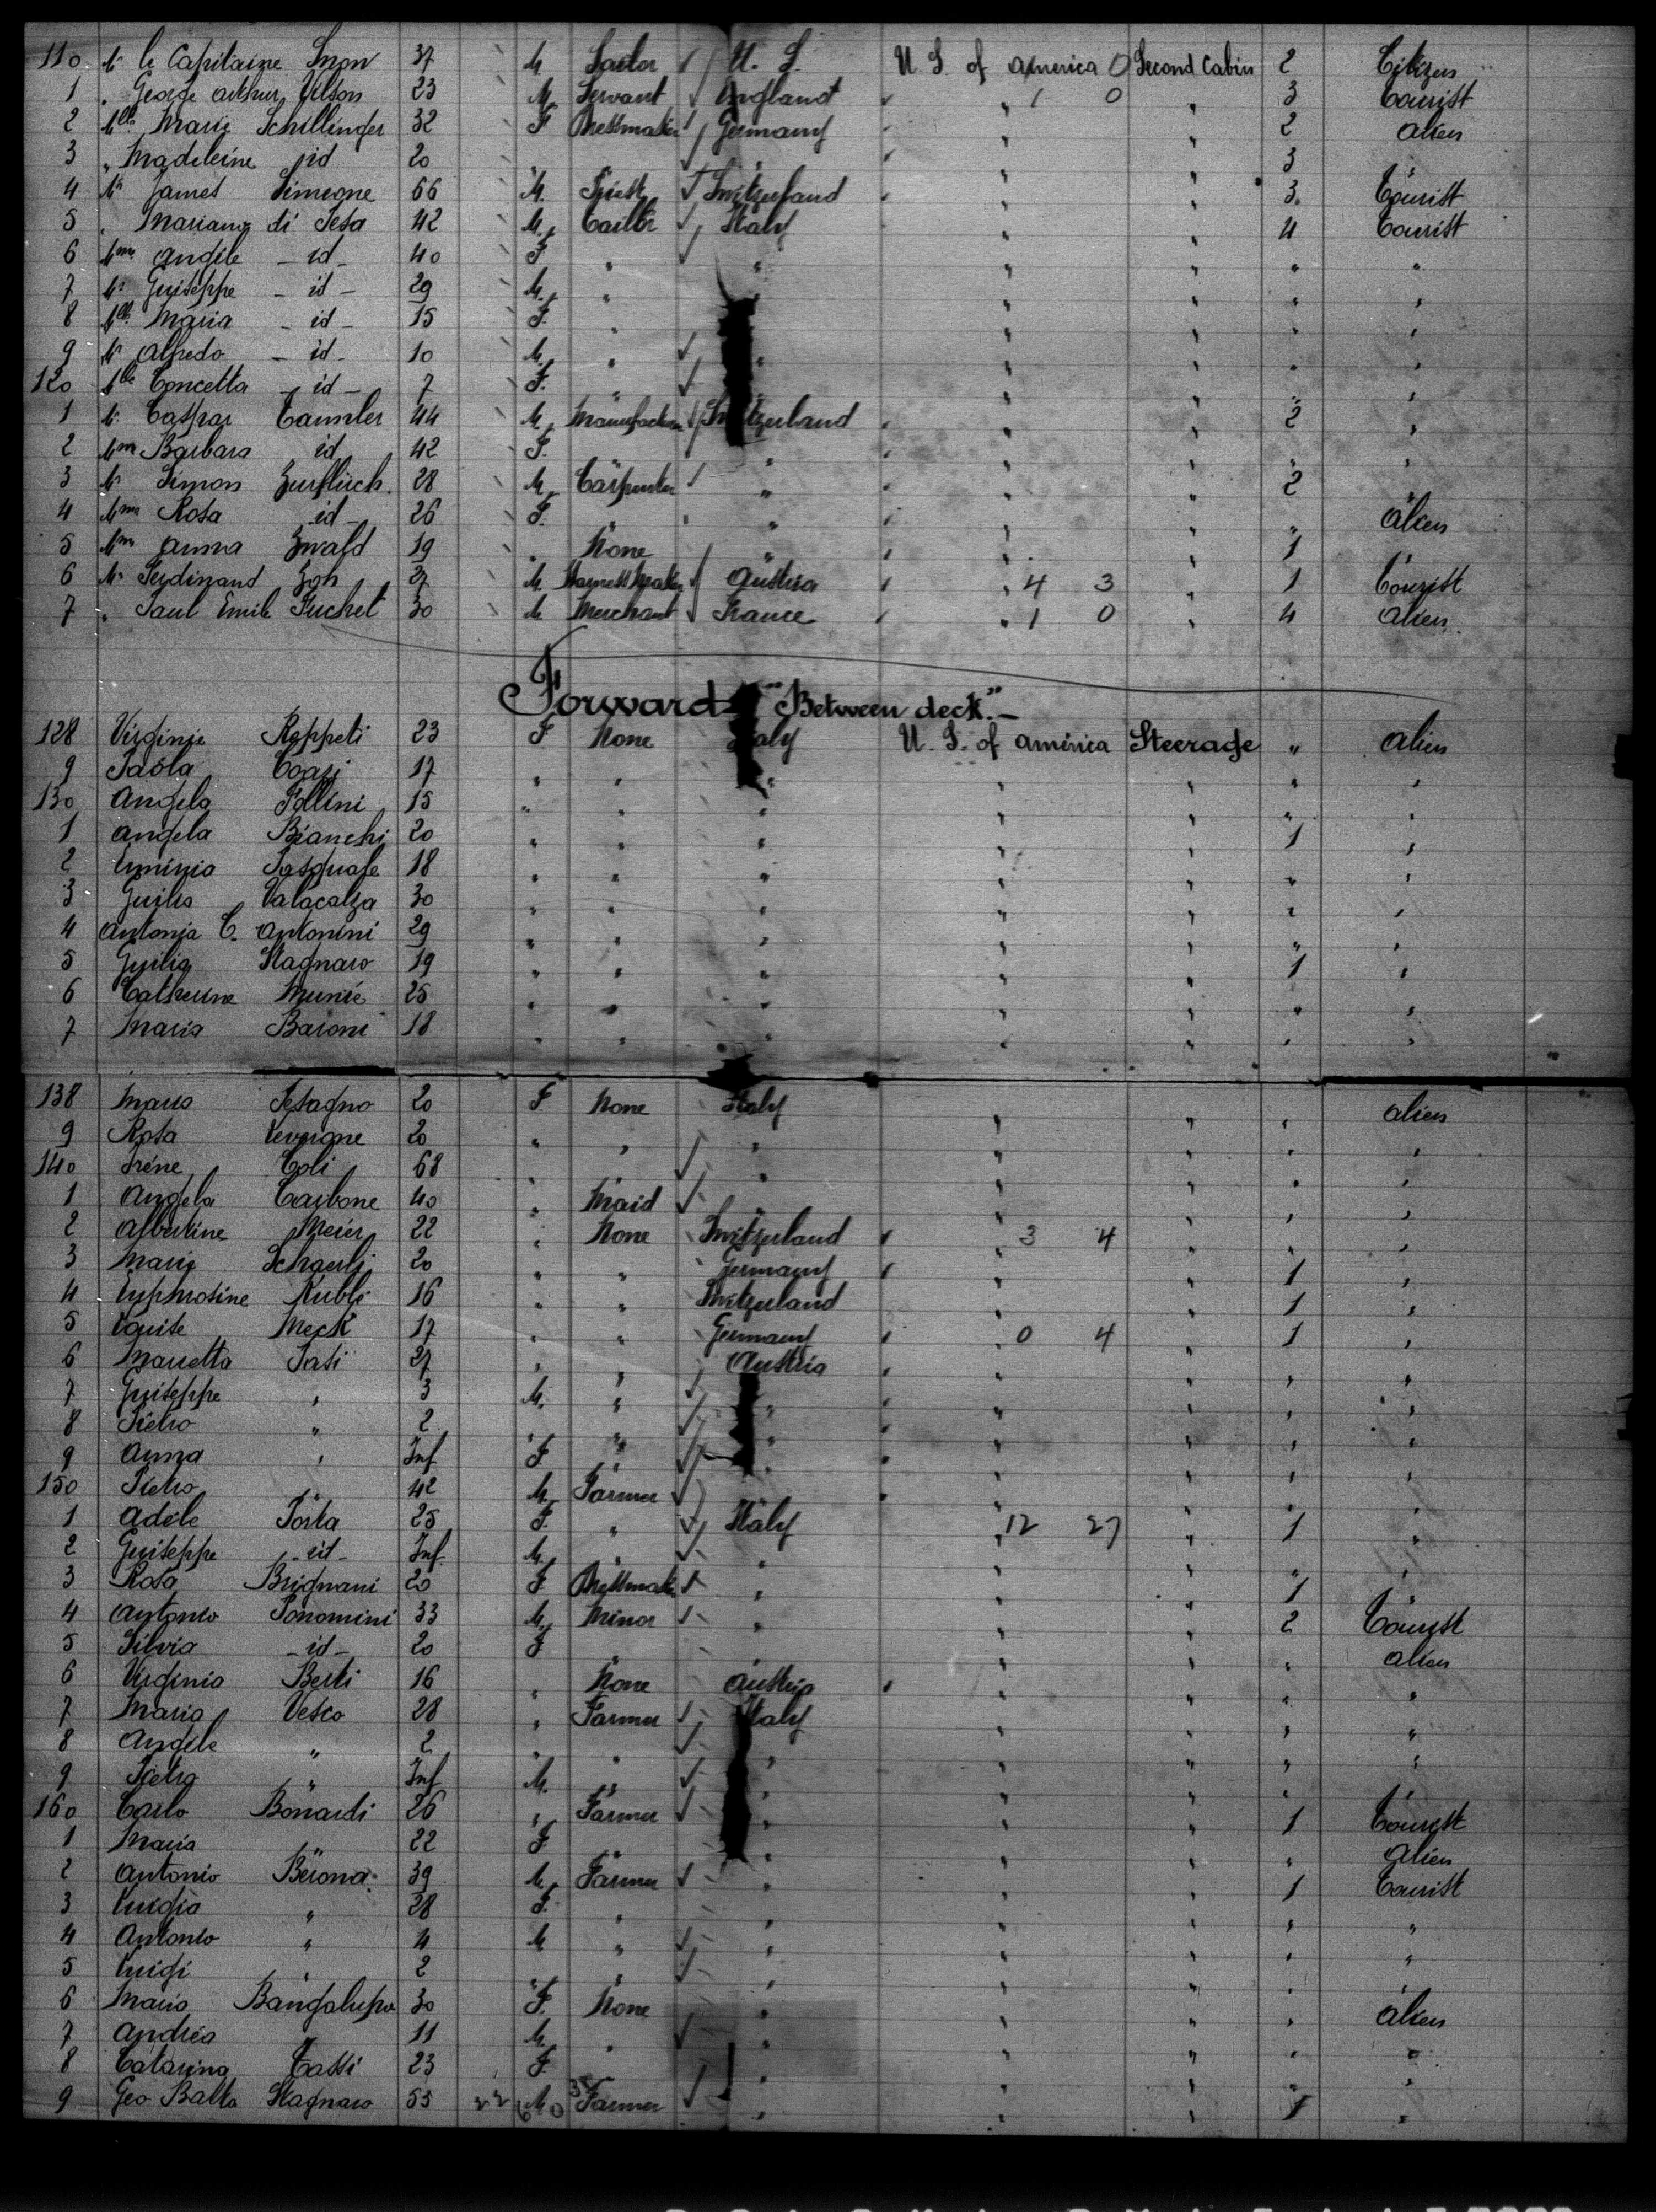 110 Mr le Capitaine Snow 37 M Sailor U. S. U. S. of America 0 Second Cabin 2 Citizen
1 " George Arthur Vilson 23 M. Servant England " 1 0 " 3 Tourist
2 Mlle Marie Schillinger 32 F Dressmaker Germany " " 2 Alien
3 " Madeleine id 20 " " " " " 3 "
4 Mr James Simeone 66 M. Priest Switzerland " " 3 Tourist
5 " Mariano di Sesa 42 M. Italy " " 4 Tourist
6 Mme Angèle - id - 40 F " " " " " "
7 Mr Guiseppe - id - 29 M. " " " " "
8 Mlle Maria - id - 15 F. " " " " "
9 Mr Alfredo - id - 10 M. " " " " " "
120 Mlle Concetta - id - 7 F. " " " " "
1 Mr Caspar Tammler 44 M. Manufacturer Switzerland " " 2 "
2 Mme Barbara id 42 F. " " " " " "
3 Mr Simon Zurflüch 28 M. Carpenter " " " 2 "
4 Mme Rosa id - 26 F. " " " " " Alien
5 Mme Anna Zwald 19 " None " " " 1 "
6 Mr Ferdinand Zoh 27 M. Harness Maker Austria " 4 3 " 1 Tourist
7 " Paul Emile Fuchet 30 M Merchant France " 1 0 " 4 Alien
Forward "Between deck".-
128 Virginie Reppeti 23 F None Italy U. S. of America Steerage " Alien
9 Paola 17 " " " " " " "
130 Angela Follini 15 " " " " " " "
1 Angela Bianchi 20 " " " " " 1 "
2 Erminia Pasquale 18 " " " " " " "
3 Guilia Valacalza 30 " " " " " " "
4 Antonia C. Antonini 29 " " " " " " "
5 Guilia Stagnaro 19 " " " " " 1 "
6 Catherine Munie 25 " " " " " " "
7 Maria Baroni 18 " " " " " " "
138 Maria Pesagno 20 F None Italy " " " Alien
9 Rosa 20 " " " " " " "
140 Irène Coli 68 " " " " " "
1 Angela Carbone 40 " Maid " " " " "
2 Albertine Meier 22 " None Switzerland " 3 4 " " "
3 Marie Schaerli 20 " " Germany " " 1 "
4 Euphrosine Kubli 16 " " Switzerland " " 1 "
5 Louise Meck 17 " " Germany " 0 4 " 1 "
6 Marietta Pasi 27 " " Austria " " " "
7 Guiseppe " 3 M. " " " " " "
8 Pietro " 2 " " " " " " "
9 Anna " Inf F " " " " " "
150 Pietro " 42 M. Farmer " " " " "
1 Adèle Porta 25 F. " Italy " 12 27 " 1 "
2 Guiseppe - id - Inf M. " " " " " "
3 Rosa Brignani 20 F Dressmaker " " " 1 "
4 Antonio Ponomini 33 M. Minor " " " 2 Tourist
5 Silvia - id - 20 F " " " " " Alien
6 Virginia Berti 16 " None Austria " " " "
7 Maria Vesco 28 " Farmer Italy " " " "
8 Angèle " 2 " " " " " " "
9 Pietro " Inf M. " " " " " "
160 Carlo Bonardi 26 " Farmer " " " 1 Tourist
1 Maria " 22 F " " " " " Alien
2 Antonio Berona 39 M. Farmer " " " 1 Tourist
3 Luigia " 28 F. " " " " " "
4 Antonio " 4 M " " " " " "
5 Luigi " 2 " " " " " " "
6 Maria Bangalupo 30 F. None " " " " Alien
7 Andréa " 11 M. " " " " " "
8 Catarina Tassi 23 F. " " " " " "
9 Geo Batta Stagnaro 55 M Farmer " " " 1 "